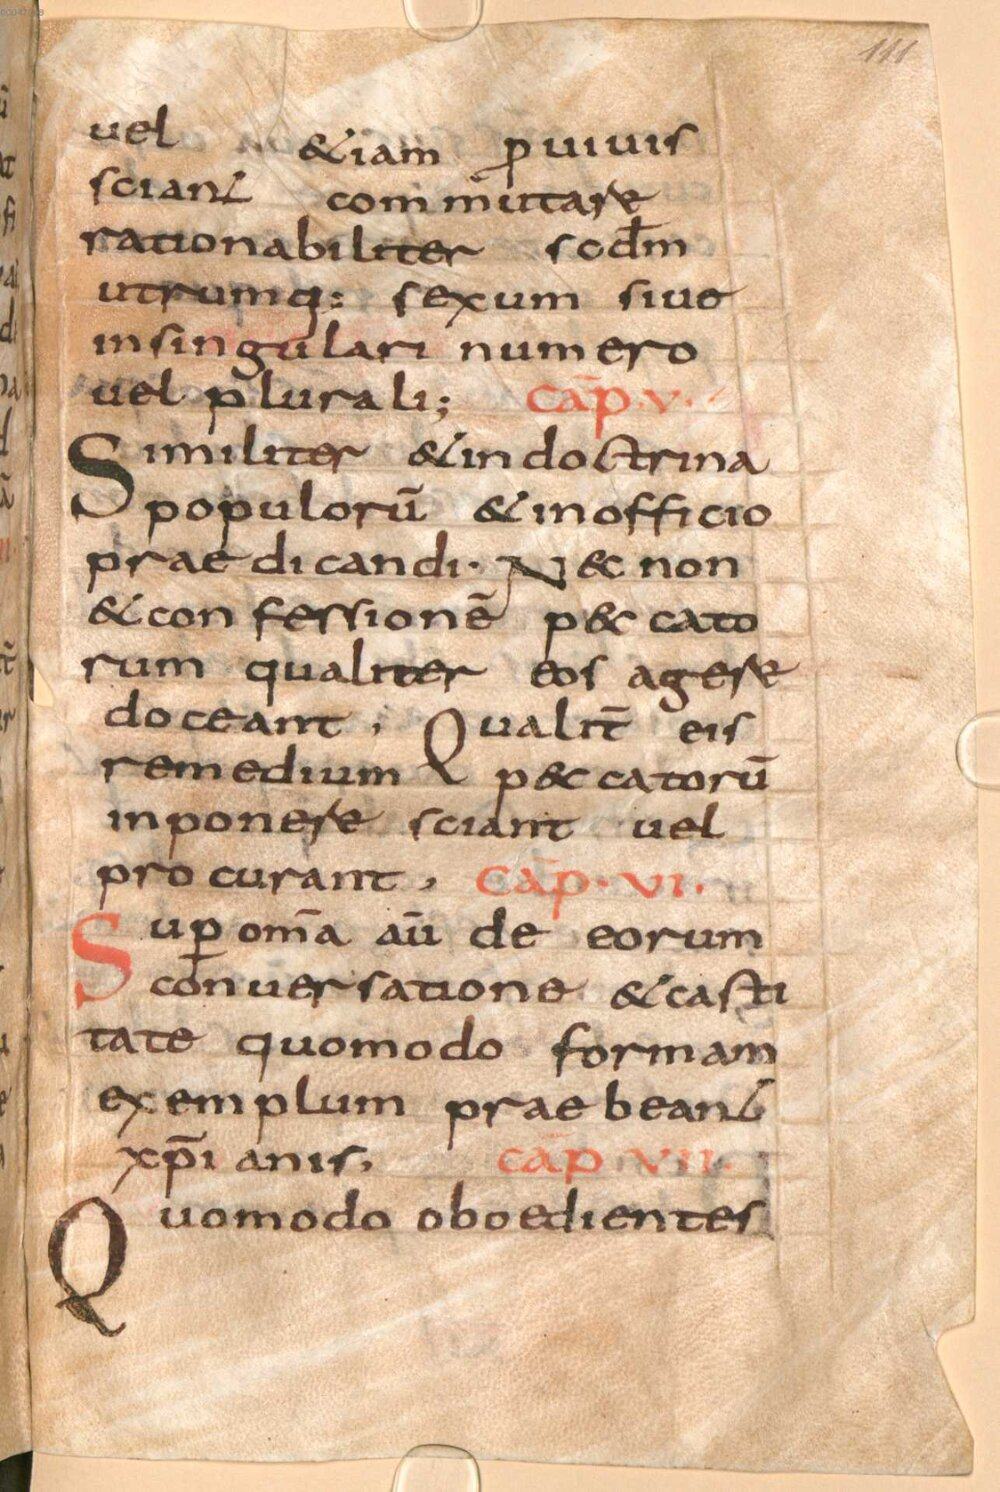 111
uel &iam ꝑ uiuis
sciant commutare
rationabiliter scd̄m
utrumq: sexum siue
insingulari numero
uel plurali; cāp. v.
Similiter & indoctrina
populorū & inofficio
praedicandi. N&non
& confessionē p&cato
rum qualiter eos agere
doceant, Qualit̄ eis
remedium p&catorū
inponere sciant uel
procurant, cāp. vi.
Suꝑ om̄a aū de eorum
conuersatione & casti
tate quomodo formam
exemplum praebeant
xp̄ianis, cāp vii.
Quomodo oboedientes